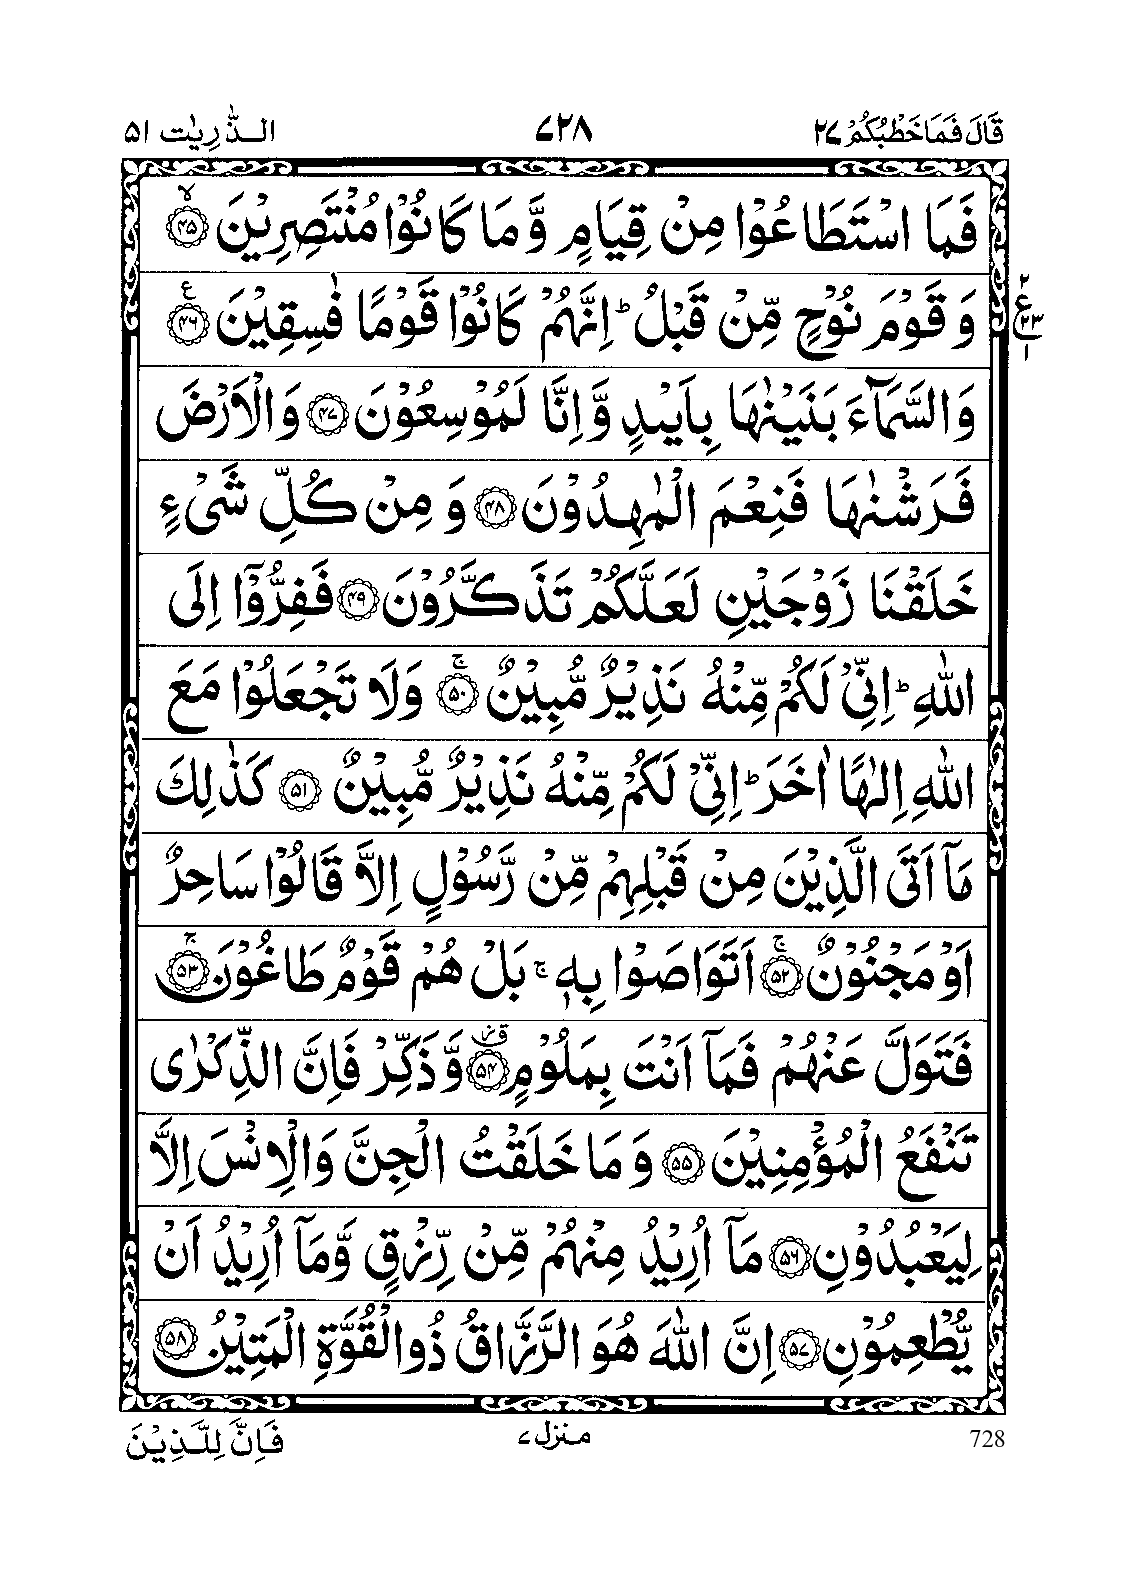 قَالَ فَمَا خَطْبُكُمْ ٢٧ ٧٢٨ الذّٰرِيٰت ٥١
فَمَا اسْتَطَاعُوْا مِنْ قِيَامٍ وَّ مَا كَانُوْا مُنْتَصِرِيْنَ ۙ﴿۴۵﴾
وَ قَوْمَ نُوْحٍ مِّنْ قَبْلُ ؕ اِنَّهُمْ كَانُوْا قَوْمًا فٰسِقِيْنَ ﴿۴۶﴾ ع ٢ ٢٣ ١
وَالسَّمَآءَ بَنَيْنٰهَا بِاَيْىدٍ وَّ اِنَّا لَمُوْسِعُوْنَ ﴿۴۷﴾ وَالْاَرْضَ
فَرَشْنٰهَا فَنِعْمَ الْمٰهِدُوْنَ ﴿۴۸﴾ وَ مِنْ كُلِّ شَىْءٍ
خَلَقْنَا زَوْجَيْنِ لَعَلَّكُمْ تَذَكَّرُوْنَ ﴿۴۹﴾ فَفِرُّوْٓا اِلَى
اللّٰهِ ؕ اِنِّىْ لَكُمْ مِّنْهُ نَذِيْرٌ مُّبِيْنٌ ۚ﴿۵۰﴾ وَلَا تَجْعَلُوْا مَعَ
اللّٰهِ اِلٰهًا اٰخَرَ ؕ اِنِّىْ لَكُمْ مِّنْهُ نَذِيْرٌ مُّبِيْنٌ ﴿۵۱﴾ كَذٰلِكَ
مَآ اَتَى الَّذِيْنَ مِنْ قَبْلِهِمْ مِّنْ رَّسُوْلٍ اِلَّا قَالُوْا سَاحِرٌ
اَوْ مَجْنُوْنٌ ۚ﴿۵۲﴾ اَتَوَاصَوْا بِهٖ ۚ بَلْ هُمْ قَوْمٌ طَاغُوْنَ ۚ﴿۵۳﴾
فَتَوَلَّ عَنْهُمْ فَمَآ اَنْتَ بِمَلُوْمٍ ﴿۵۴﴾ وَّ ذَكِّرْ فَاِنَّ الذِّكْرٰى
تَنْفَعُ الْمُؤْمِنِيْنَ ﴿۵۵﴾ وَ مَا خَلَقْتُ الْجِنَّ وَالْاِنْسَ اِلَّا
لِيَعْبُدُوْنِ ﴿۵۶﴾ مَآ اُرِيْدُ مِنْهُمْ مِّنْ رِّزْقٍ وَّمَآ اُرِيْدُ اَنْ
يُّطْعِمُوْنِ ﴿۵۷﴾ اِنَّ اللّٰهَ هُوَ الرَّزَّاقُ ذُوالْقُوَّةِ الْمَتِيْنُ ﴿۵۸﴾
728 منزل ٧ فَاِنَّ لِلَّذِيْنَ